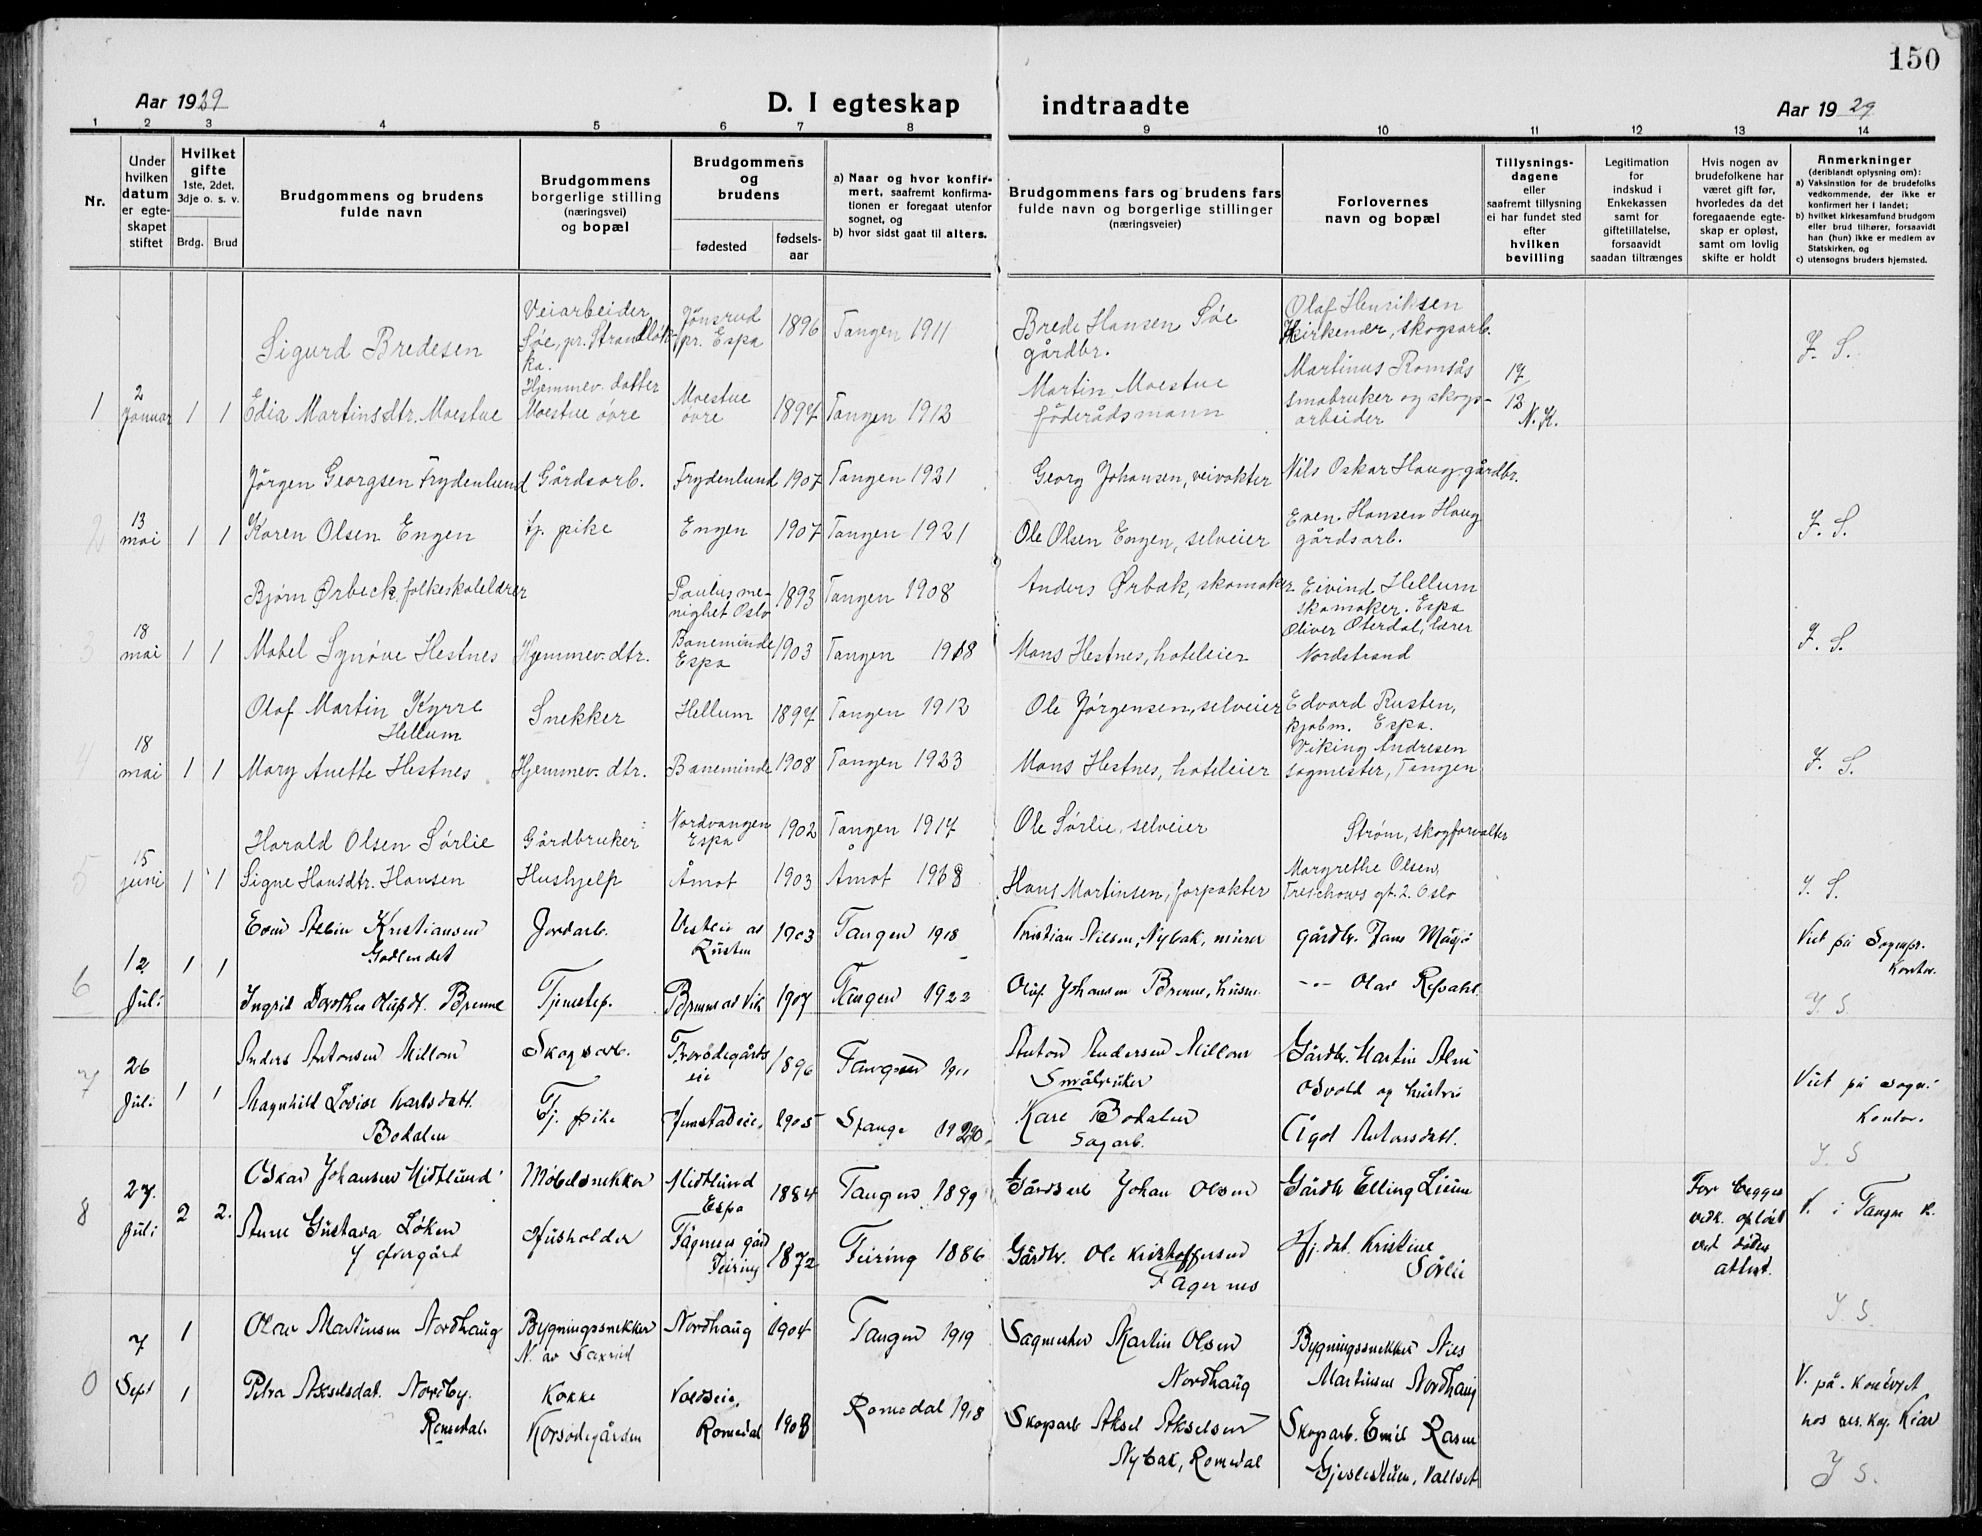 150
Aar 1929
D. I egteskap indtraadte
Aar 1929
1 2 3 4 5 6 7 8 9 10 11 12 13 14
Nr.
Under hvilken datum er egteskapet stiftet
Hvilket gifte
1ste, 2det, 3dje o. s. v.
Brdg. Brud
Brudgommens og brudens
fulde navn
Brudgommens
borgerlige stilling
(næringsvei)
og bopæl
Brudgommens
og
brudens
fødested
fødsels-
aar
a) Naar og hvor konfir-
mert, saafremt konfirma-
tionen er foregaat utenfor
sognet, og
b) hvor sidst gaat til alters.
Brudgommens fars og brudens fars
fulde navn og borgerlige stillinger
(næringsveier)
Forlovernes
navn og bopæl
Tillysnings-
dagene
eller
saafremt tillysning
ei har fundet sted
efter
hvilken
bevilling
Legitimation
for
indskud i
Enkekassen
samt for
giftetillatelse,
forsaavidt
saadan tiltrænges
Hvis nogen av
brudefolkene har
været gift før,
hvorledes da det
foregaaende egte-
skap er opløst,
samt om lovlig
skifte er holdt
Anmerkninger
(deriblandt oplysning om):
a) Vaksination for de brudefolks
vedkommende, der ikke er
konfirmert her i landet;
b) hvilket kirkesamfund brudgom
eller brud tilhører, forsaavidt
han (hun) ikke er medlem av
Statskirken, og
c) utensogns bruders hjemsted.
1
2 Januar
1 1
Sigurd Bredesen
Veiarbeider
Søe, pr. Strandløk-
ka.
Jønsrud
pr. Espa
1896
Tangen 1911
Brede Hansen Søe
gårdbr.
Olaf Henriksen
Kirkender, skogsarb.
J. S.
Edia Martinsdtr. Moestue
Hjemmev. datter
Moestue övre
Moestue
övre
1897
Tangen 1912
Martin Moestue
föderådsmann
Martinus Romsås
småbruker og skogs-
arbeider
17
12
N. K.
2
13 mai
1 1
Jörgen Georgsen Frydenlund
Gårdsarb.
Frydenlund
1907
Tangen 1921
Georg Johansen, veivokter
Nils Oskar Haug, gårdbr.
Karen Olsen Engen
tj. pike
Engen
1907
Tangen 1921
Ole Olsen Engen, selveier
Even Hansen Haug
gårdsarb.
J. S.
3
18 mai
1 1
Bjørn Ørbeck, folkeskolelærer
Paulus me-
nighet Oslo
1893
Tangen 1908
Anders Ørbæk, skomaker
Eivind Hellum
skomaker. Espa
Mabel Synøve Hestnes
Hjemmev. dtr.
Baneminde
Espa
1903
Tangen 1918
Mons Hestnes, hoteleier
Oliver Oterdal, lærer
Nordstrand
J. S.
4
18 mai
1 1
Olaf Martin Kyrre
Hellum
Snekker
Hellum
1897
Tangen 1912
Ole Jørgensen, selveier
Edvard Rusten,
kjøbm. Espa.
Mary Anette Hestnes
Hjemmev. dtr.
Baneminde
1908
Tangen 1923
Mons Hestnes, hoteleier
Viking Andresen
sagmester, Tangen
J. S.
5
15 juni
1 1
Harald Olsen Sørlie
Gårdbruker
Nordvangen
Espa
1902
Tangen 1917
Ole Sørlie, selveier
Strøm, skogforvalter
Signe Hansdtr. Hansen
Hushjelp
Åmot
1903
Åmot 1918
Hans Martinsen, forpakter
Margrethe Olsen,
Treschows gt. 2. Oslo
J. S.
6
12 Juli
1 1
Albin Kristiansen
Jordarb.
Rusten
1903
Tangen 1918
Kristian Nilsen, Nybak, murer
gårdbr. Jans
Viet på Sognepr.
Kontor.
Ingrid Dorothea Olufsdt. Brenne
Tjenestep.
Brenne ad Vik
1907
Tangen 1922
Oluf Johansen Brenne, husm.
-"- Olav Refdahl
J. S
7
26 Juli
1 1
Anders Antonsen Millom
Skogsarb.
eie
1896
Tangen 1911
Anton Andersen Millom
Småbruker
Gårdbr. Martin
Osvold og hustru
Magnhild Lovise Karlsdatt.
Bodalen
Tj. pike
1905
Stange 1920.
Kare Bodalen
Sagarb.
Ågot Antonsdatt.
Viet på sogne
Kontor.
J. S
8
27. Juli
2 2.
Oskar Johansen Midtlund
Møbelsnekker
Midtlund
Espa
1884
Tangen 1899
Gårdsarb Johan Olsen
Gårdbr Elling Lium
Anne Gustava Løken
f Overgård
Husholder
Fagernes gård
Feiring
1872
Feiring 1886
Gårdbr. Ole Kristoffersen
Fagernes
Hj. dat. Kristine
Sørlie
For begges
vedk. opløst
ved døden
attest.
V. i Tangen k.
J S
0
7 Sept
1
1
Olav Martinsen Nordhaug
Bygningssnekker
N. av Saxrud
Nordhaug
1904
Tangen 1919
Sagmester Martin Olsen
Nordhaug
Bygningssnekker Nils
Martinsen Nordhaug
Petra Akselsdat. Nordby.
Romedal.
Kokke
Korsødegården
Romedal
1908
Romedal 1918
Skogsarb Aksel Akselsen
Nybak, Romedal
Skogsarb. Emil Rasen
Gjeslestuen, Vallset
V. på. Kontoret
hos res. kap. Kiær
J S.